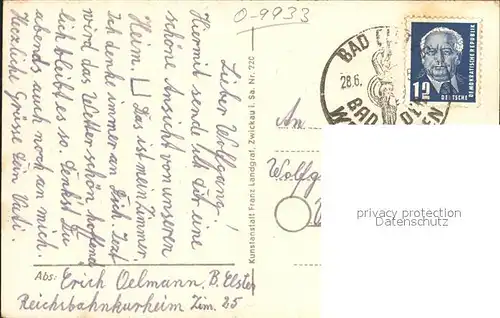 O-9933
Lieber Wolfgang!
Hiermit sende ich dir eine
schöne Ansicht von unseren
Heim. Das ist mein Zimmer.
Ich denke immer an Dich. Jezt
wird das Wetter schön, hoffend
lich bleibt es so. Denkst Du
abends auch noch an mich.
Herzliche Grüsse Dein Vati.
Abs: Erich Oelmann, B. Elster
Reichsbahnkurheim Zim. 25
Kunstanstalt Franz Landgraf, Zwickau i. Sa. Nr. 220
BAD
28.6.
BAD
DEUTSCHE DEMOKRATISCHE REPUBLIK
12 DEUTSCHE
An
Wolfg
privacy protection
Datenschutz